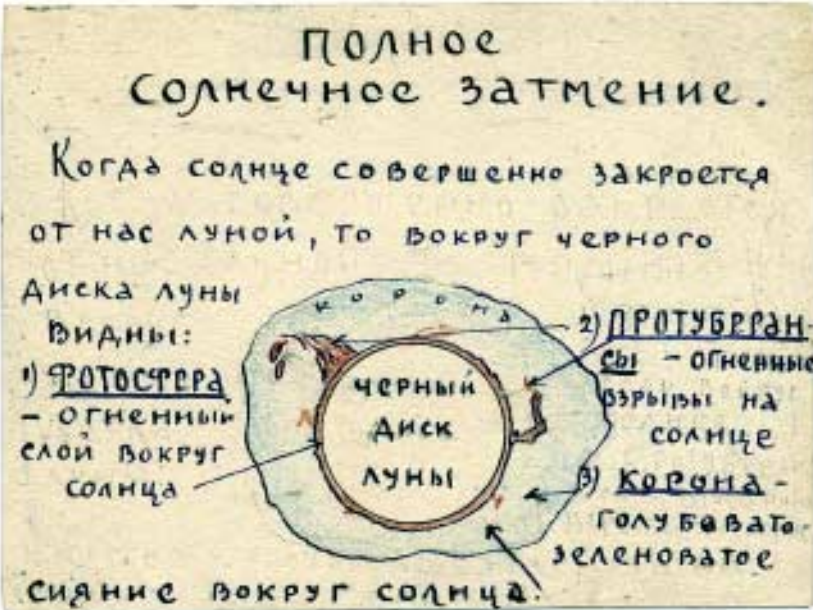 ПОЛНОЕ
СОЛНЕЧНОЕ ЗАТМЕНИЕ.
Когда солнце совершенно закроется
от нас луной, то вокруг черного
диска луны
видны:
1) ФОТОСФЕРА
- огненный
слой вокруг
солнца
КОРОНА
ЧЕРНЫЙ
ДИСК
ЛУНЫ
2) ПРОТУБЕРАН-
СЫ - огненные
взрывы на
солнце
3) КОРОНА -
голубовато-
зеленоватое
сияние вокруг солнца.